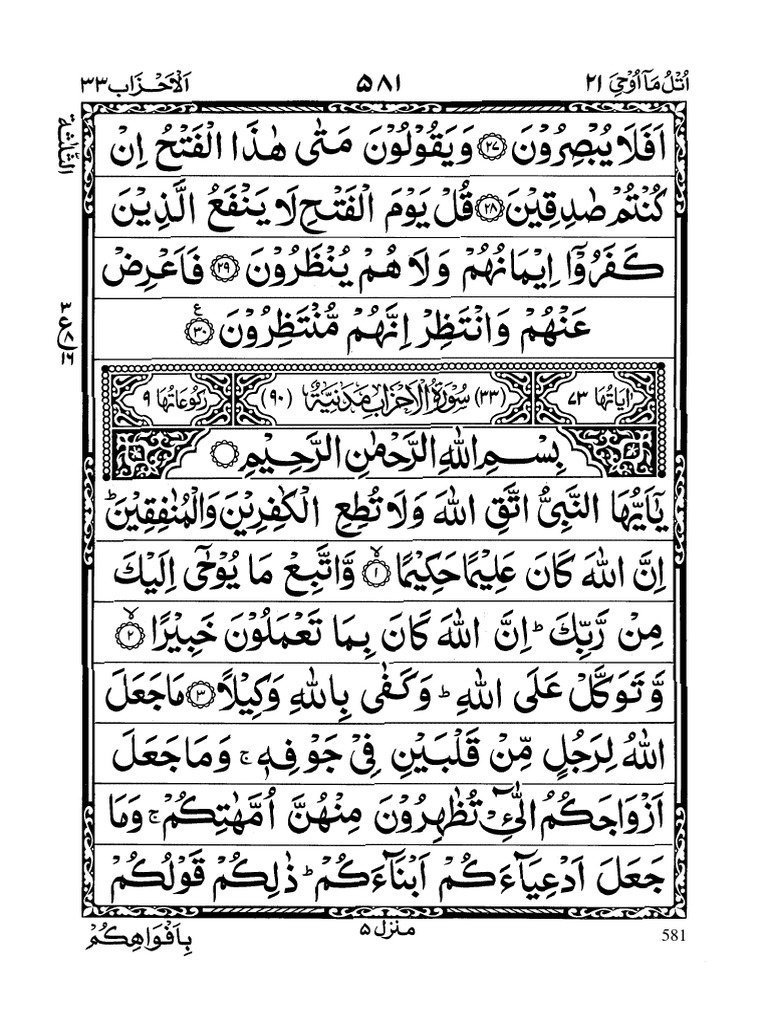 اُتْلُ مَاۤ اُوْحِيَ ٢١ ٥٨١ اَلْاَحْزَاب ٣٣
الثلٰثة
اَفَلَا يُبْصِرُوْنَ ﴿٢٧﴾ وَيَقُوْلُوْنَ مَتٰى هٰذَا الْفَتْحُ اِنْ
كُنْتُمْ صٰدِقِيْنَ ﴿٢٨﴾ قُلْ يَوْمَ الْفَتْحِ لَا يَنْفَعُ الَّذِيْنَ
كَفَرُوْۤا اِيْمَانُهُمْ وَلَا هُمْ يُنْظَرُوْنَ ﴿٢٩﴾ فَاَعْرِضْ
عَنْهُمْ وَانْتَظِرْ اِنَّهُمْ مُّنْتَظِرُوْنَ ﴿٣٠﴾ ع
٣
ع ٨
١٦
اٰيَاتُهَا ٧٣ (٣٣) سُوْرَةُ الْاَحْزَابِ مَدَنِيَّةٌ (٩٠) رُكُوْعَاتُهَا ٩
بِسْمِ اللّٰهِ الرَّحْمٰنِ الرَّحِيْمِ
يٰۤاَيُّهَا النَّبِيُّ اتَّقِ اللّٰهَ وَلَا تُطِعِ الْكٰفِرِيْنَ وَالْمُنٰفِقِيْنَ ؕ
اِنَّ اللّٰهَ كَانَ عَلِيْمًا حَكِيْمًا ﴿١﴾ ۙ وَّاتَّبِعْ مَا يُوْحٰۤى اِلَيْكَ
مِنْ رَّبِّكَ ؕ اِنَّ اللّٰهَ كَانَ بِمَا تَعْمَلُوْنَ خَبِيْرًا ﴿٢﴾ ۙ
وَّتَوَكَّلْ عَلَى اللّٰهِ ؕ وَكَفٰى بِاللّٰهِ وَكِيْلًا ﴿٣﴾ مَا جَعَلَ
اللّٰهُ لِرَجُلٍ مِّنْ قَلْبَيْنِ فِيْ جَوْفِهٖ ۚ وَمَا جَعَلَ
اَزْوَاجَكُمُ الّٰٓـِٔيْ تُظٰهِرُوْنَ مِنْهُنَّ اُمَّهٰتِكُمْ ۚ وَمَا
جَعَلَ اَدْعِيَآءَكُمْ اَبْنَآءَكُمْ ؕ ذٰلِكُمْ قَوْلُكُمْ
بِاَفْوَاهِكُمْ منزل ٥ 581